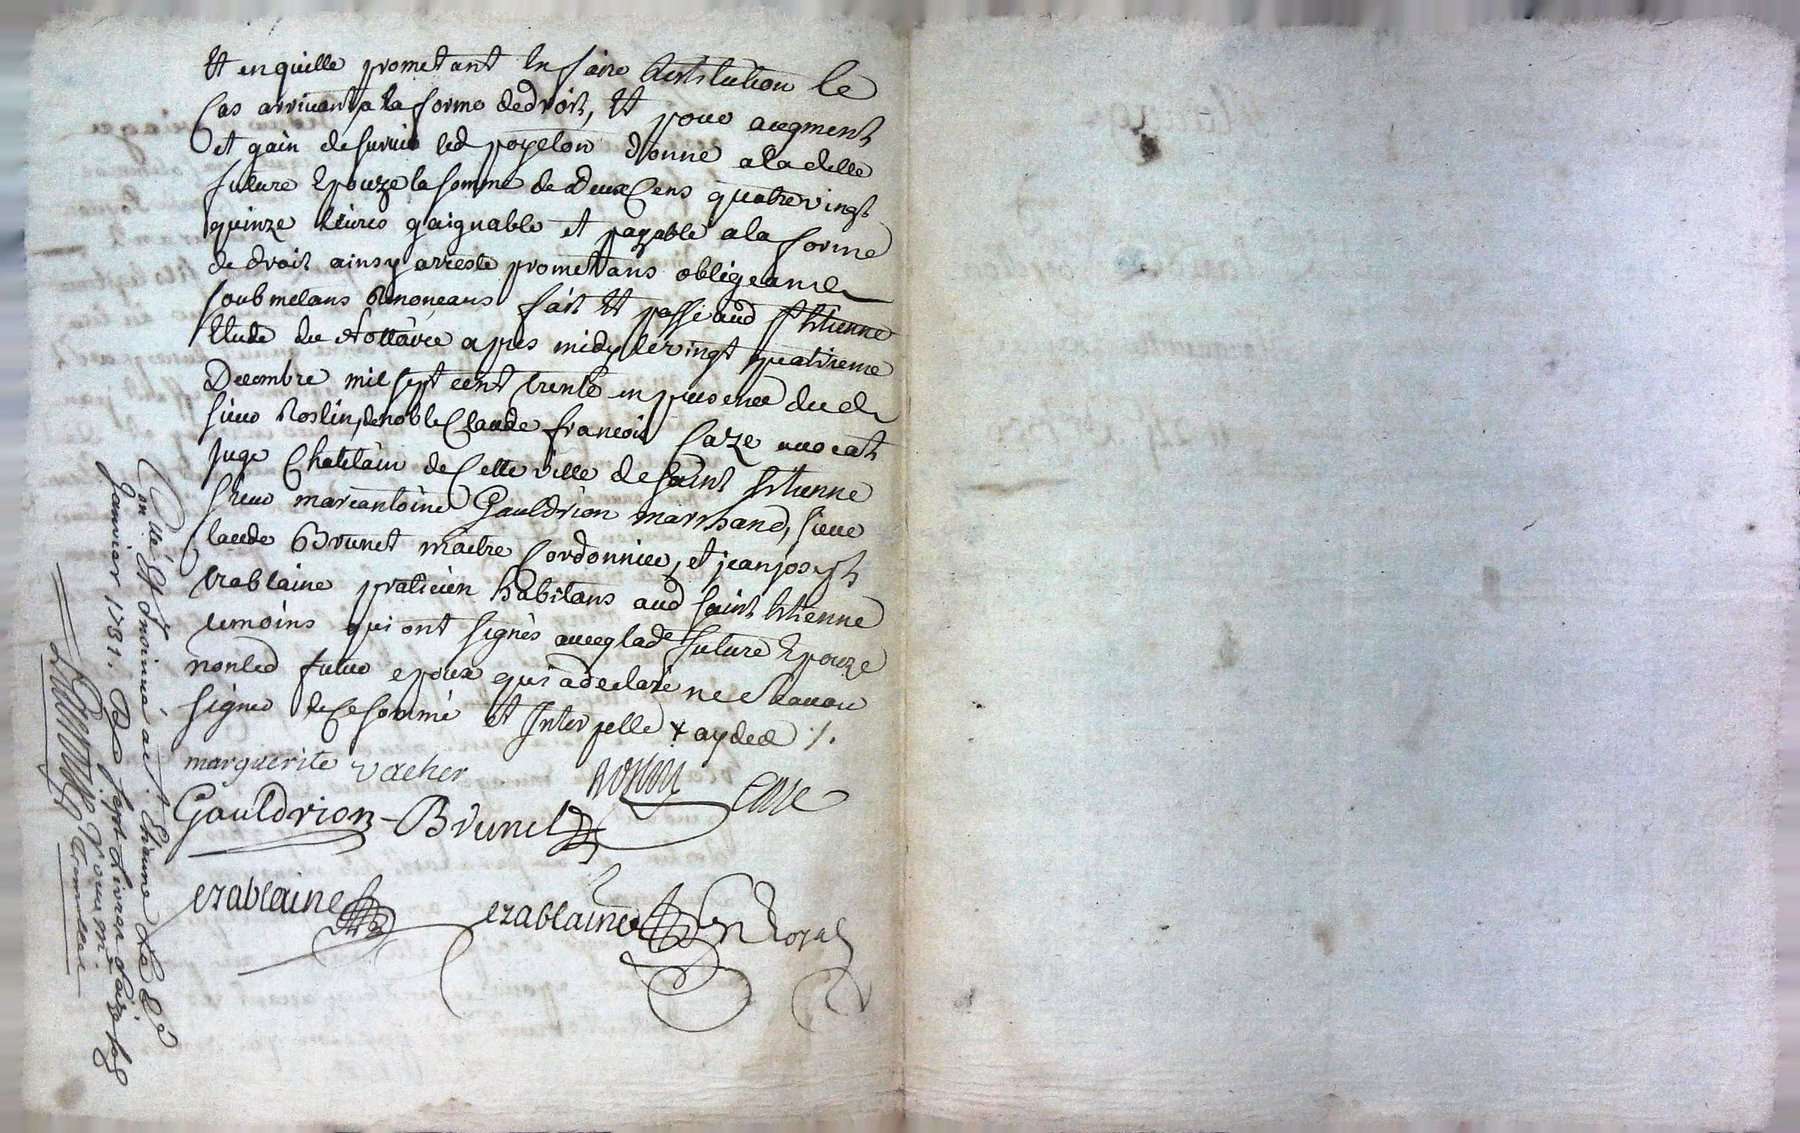 Et enquille prometant en faire Restitution le
Cas arrivant a la forme de droit, Et pour augment
et gain de survie led poyelon donne a la delle
future Epouze la somme de deux Cens quatrevingt
quinze Livres gaignable et payable a la forme
de droit ainsy arresté prometans obligeans
soubmetans Renonceans fait Et passé aud St Etienne
Etude du Nottaire apres midy le vingt quatrieme
Decembre mil sept cent trente en presence dud
sieur Roslin, de noble Claude francois Caze avocat
juge Chatelain de Cette ville de Saint Etienne
sieur marcantoine Gauldrion marchand, sieur
Claude Brunet maitre Cordonnier, et jean joseph
trablaine praticien habitans aud Saint Etienne
temoins qui ont signés avec lade future Epouze
non led futur epoux qui a declaré ne Scavoir
signer de Ce sommé et Interpellé
marguerite vacher Roslin Caze
Gauldrion Brunet
trablaine trablaine No Royal
Collé Et Insinué a St. Etienne Le
Janvier 1731. R sept Livres